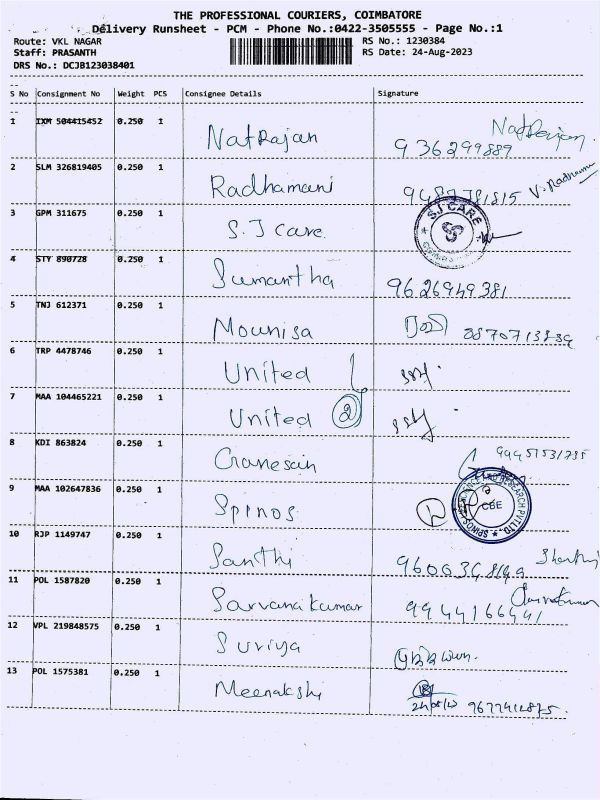 THE PROFESSIONAL COURIERS, COIMBATORE
Delivery Runsheet - PCM - Phone No.:0422-3505555 - Page No.:1
Route: VKL NAGAR
RS No.: 1230384
Staff: PRASANTH
RS Date: 24-Aug-2023
DRS No.: DCJB123038401
S No Consignment No Weight PCS Consignee Details Signature
1 IXM 504415452 0.250 1 Natrajan 936299889 Natrajan
2 SLM 326819405 0.250 1 Radhamani 9487781815 V. Radhamani
3 GPM 311675 0.250 1 S.J Care S.J CARE
4 STY 890728 0.250 1 Sumantha 9626949381
5 TNJ 612371 0.250 1 Mounisa
6 TRP 4478746 0.250 1 United
7 MAA 104465221 0.250 1 United 2
8 KDI 863824 0.250 1 Ganesain
9 MAA 102647836 0.250 1 Spinos CBE
10 RJP 1149747 0.250 1 Santhi
11 POL 1587820 0.250 1 Sarvanakumar 9944166441
12 VPL 219848575 0.250 1 Suriya
13 POL 1575381 0.250 1 Meenakshi